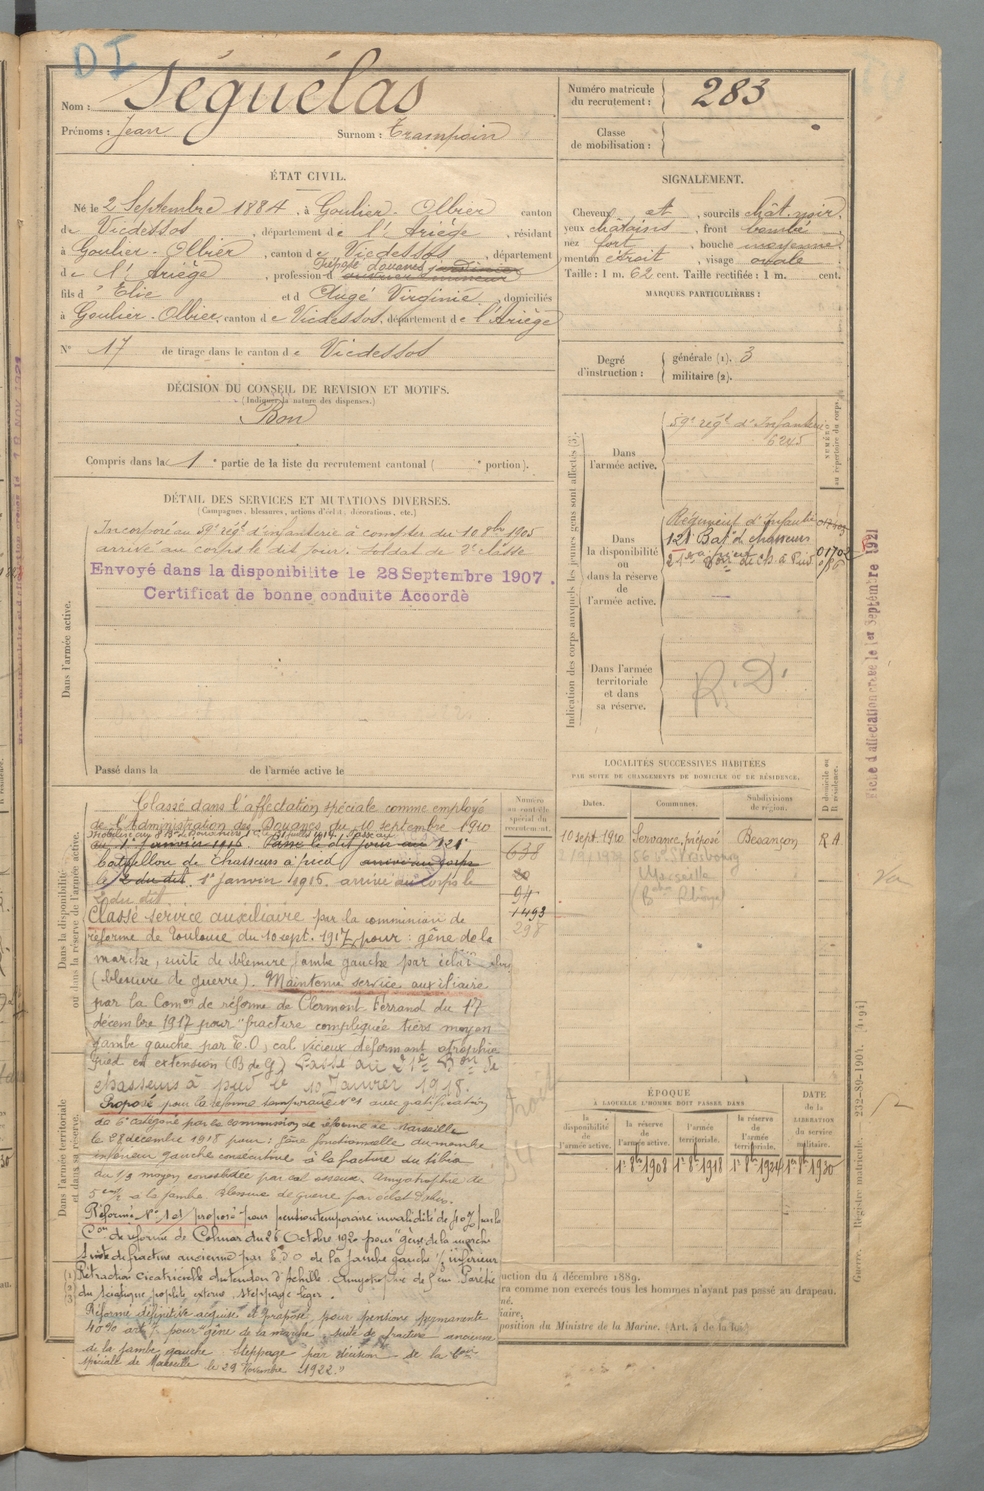 D I
Nom : Séguélas
Prénoms : Jean Surnom : Trampoin
Numéro matricule du recrutement : 283
Classe de mobilisation :
ÉTAT CIVIL.
Né le 2 Septembre 1884, à Goulier-Olbier canton
de Vicdessos, département de l'Ariège, résidant
à Goulier-Olbier, canton de Vicdessos, département
de l'Ariège, profession d Préposé douanes
fils d'Elie et d Augé Virginie, domiciliés
à Goulier-Olbier, canton de Vicdessos, département de l'Ariège
N° 17 de tirage dans le canton de Vicdessos
SIGNALEMENT.
Cheveux et sourcils chât. noir
yeux châtains, front bombé
nez fort, bouche moyenne
menton étroit, visage ovale
Taille : 1 m. 62 cent. Taille rectifiée : 1 m. cent.
MARQUES PARTICULIÈRES :
Degré d'instruction : générale (1). 3
militaire (2).
DÉCISION DU CONSEIL DE REVISION ET MOTIFS.
(Indiquer la nature des dispenses.)
Bon
Compris dans la 1e partie de la liste du recrutement cantonal ( e portion).
DÉTAIL DES SERVICES ET MUTATIONS DIVERSES.
(Campagnes, blessures, actions d'éclat, décorations, etc.)
Dans l'armée active.
Incorporé au 59e régt d'infanterie à compter du 10 8bre 1905
arrivé au corps le dit jour. Soldat de 2e classe
Envoyé dans la disponibilité le 28 Septembre 1907.
Certificat de bonne conduite Accordé
Passé dans la de l'armée active le
Indication des corps auxquels les jeunes gens sont affectés (3).
NUMÉRO au répertoire du corps.
Dans l'armée active.
59e régt d'Infanterie
6245
Dans la disponibilité ou dans la réserve de l'armée active.
Régiment d'Infanterie
121e Bat. de chasseurs
01702
Dans l'armée territoriale et dans sa réserve.
R. D.
Fiche d'affectation créée le 1er Septembre 1921
Dans la disponibilité ou dans la réserve de l'armée active.
Classé dans l'affectation spéciale comme employé
de l'Administration des Douanes du 10 septembre 1910
du 1 Janvier 1916 Passé le dit jour au 121e
bataillon de Chasseurs à pied arrivé au corps
le 2 du dit 1er Janvier 1916. arrivé au corps le
2 du dit
Classé service auxiliaire par la commission de
réforme de Toulouse du 10 sept. 1917 pour : gêne de la
marche, suite de blessure jambe gauche par éclat obus
(blessure de guerre). Maintenu service auxiliaire
par la Comon de réforme de Clermont Ferrand du 17
décembre 1917 pour "fracture compliquée tiers moyen
jambe gauche par E.O, cal vicieux déformant atrophie
Pied en extension (B de G) Passé au 21e Bon de
chasseurs à pied le 10 Janvier 1918.
Proposé pour la réforme temporaire N° 1 avec gratification
de 6e catégorie par la commission de réforme de Marseille
le 28 décembre 1918 pour : Gêne fonctionnelle du membre
inférieur gauche consécutive à la fracture du tibia
au 1/3 moyen consolidée par cal osseux. Amyotrophie de
5 cm 1/2 à la jambe. Blessure de guerre par éclat d'obus.
Réformé N° 1 et proposé pour pension temporaire invalidité de 40% par la
Con de réforme de Colmar du 26 Octobre 1920 pour "gêne de la marche
suite de fracture ancienne par E. d'O de la jambe gauche 1/3 inférieur
Rétraction cicatricielle du tendon d'Achille. Amyotrophie de 5 cm Parésie
du sciatique poplité externe, steppage léger.
Réformé définitive acquise et proposé pour pension permanente
40% pour "gêne de la marche, suite de fracture ancienne
de la jambe gauche. Steppage" par décision de la Con
spéciale de Marseille le 29 Novembre 1922."
Dans l'armée territoriale et dans sa réserve.
Numéro au contrôle spécial du recrutement.
638
80
94
1493
298
LOCALITÉS SUCCESSIVES HABITÉES
PAR SUITE DE CHANGEMENTS DE DOMICILE OU DE RÉSIDENCE.
Dates. Communes. Subdivisions de région. D domicile ou R résidence.
10 sept. 1910 Servance, préposé Besançon R A
Strasbourg
Marseille
ÉPOQUE
À LAQUELLE L'HOMME DOIT PASSER DANS
la disponibilité de l'armée active. la réserve de l'armée active. l'armée territoriale. la réserve de l'armée territoriale. DATE de la LIBÉRATION du service militaire.
1er 8bre 1908 1er 8bre 1918 1er 8bre 1924 1er 8bre 1930
uction du 4 décembre 1889.
ra comme non exercés tous les hommes n'ayant pas passé au drapeau.
né.
iaire,
position du Ministre de la Marine. (Art. 4 de la loi
Guerre. Registre matricule. 232-89-1904. [494]